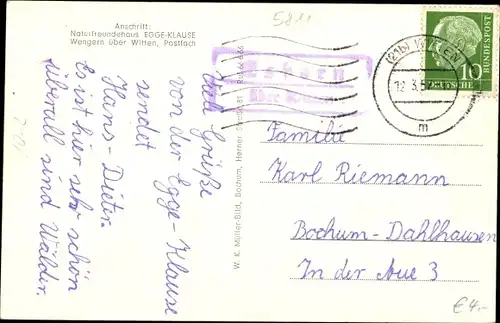 Anschrift:
Naturfreundehaus EGGE-KLAUSE
Wengern über Witten, Postfach
5811
Viele Grüße
von der Egge-Klause
sendet
Hans-Dieter.
Es ist hier sehr schön
überall sind Wälder.
W. K. Müller-Bild, Bochum, Herner Straße 81
Esborn
(21b) WITTEN
m
DEUTSCHE
BUNDESPOST
10
Familie
Karl Riemann
Bochum-Dahlhausen
In der Aue 3
€4,-